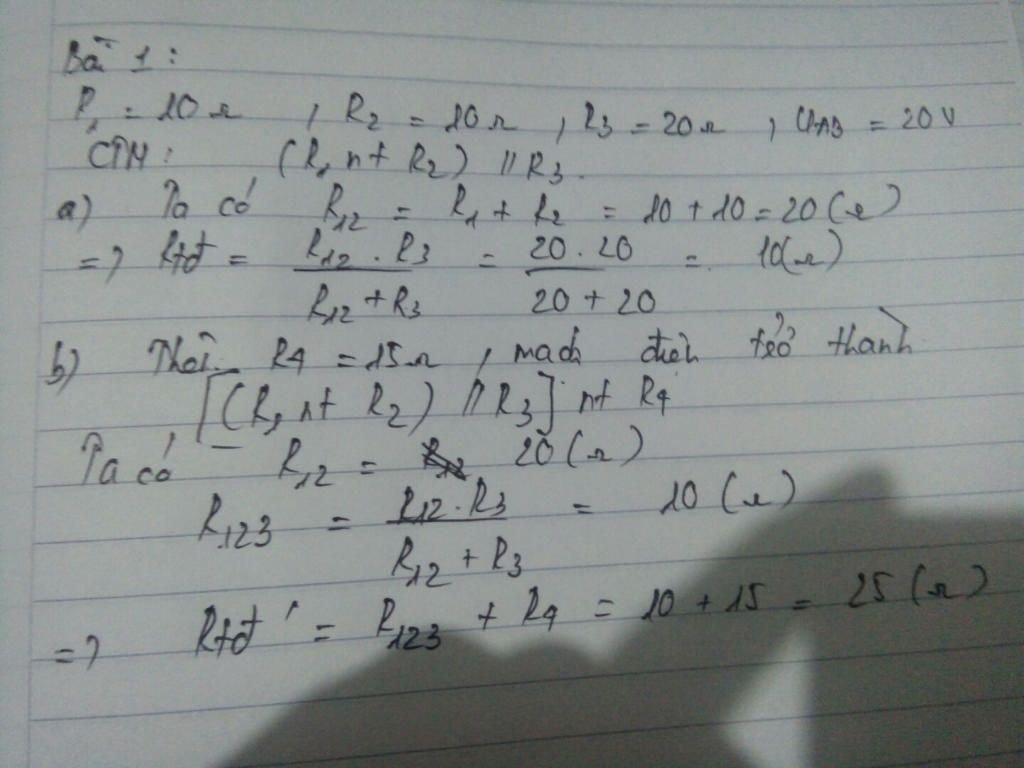 Bài 1:
R₁ = 10Ω , R₂ = 10Ω , R₃ = 20Ω , UAB = 20V
CTM: (R₁ nt R₂) // R₃.
a) Ta có R₁₂ = R₁ + R₂ = 10 + 10 = 20 (Ω)
=> Rtđ = R₁₂ . R₃ / R₁₂ + R₃ = 20 . 20 / 20 + 20 = 10(Ω)
b) R₄ = 15Ω , mạch điện trở thành
[(R₁ nt R₂) // R₃] nt R₄
Ta có R₁₂ = 20 (Ω)
R₁₂₃ = R₁₂ . R₃ / R₁₂ + R₃ = 10 (Ω)
=> Rtđ' = R₁₂₃ + R₄ = 10 + 15 = 25 (Ω)